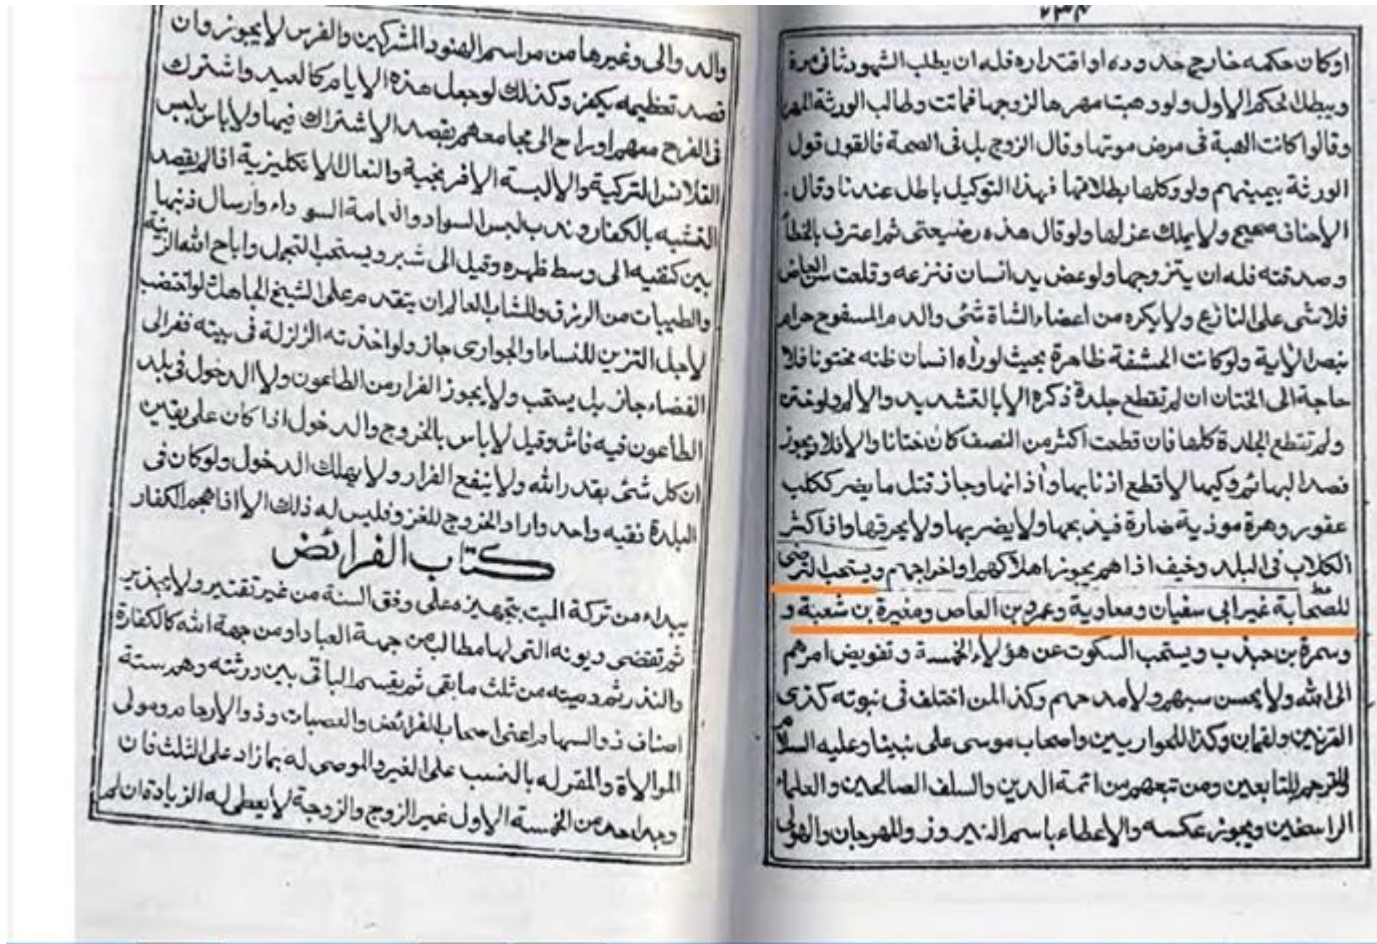 ٢٣٤
اوكان حكمه خارج حدوده او اقتداره فله ان يطلب الشهود ثانى مرة
ويبطل الحكم الاول ولو وهبت مهرها لزوجها فماتت وطالب الورثة المهر
وقالوا كانت الهبة فى مرض موتها وقال الزوج بل فى الصحة فالقول قول
الورثة بيمينهم ولو وكلها بطلاقها فهذا التوكيل باطل عندنا وقال
الاحناف صحيح ولا يملك عزلها ولو قال هذه رضيعتى ثم اعترف بالخطأ
وصدقته فله ان يتزوجها ولو عض يد انسان فنزعه وقلعت سن العاض
فلا شى على النازع ولا يكره من اعضاء الشاة شئى والدم المسفوح حرام
بنص الاية ولو كانت الحشفة ظاهرة بحيث لو رأه انسان ظنه مختونا فلا
حاجة الى الختان ان لم تقطع جلدة ذكره الا بالتشديد والالم ولو ختن
ولم تقطع الجلدة كلها فان قطعت اكثر من النصف كان ختانا والا فلا ويجوز
فصد البهائم وكيها لا قطع اذنابها وأذانها وجاز قتل ما يضر ككلب
عقور وهرة موذية ضارة فيذبحها ولا يضربها ولا يحرقها واذا كثر
الكلاب فى البلد وخيف اذاهم يجوز اهلاكهم او اخراجهم ويستحب الترضى
للصحابة غير ابى سفيان ومعاوية وعمرو بن العاص ومغيرة بن شعبة و
وسمرة بن جندب ويستحب السكوت عن هؤلاء الخمسة وتفويض امرهم
الى الله ولا يحسن سبهم ولا مدحهم وكذا لمن اختلف فى نبوته كذى
القرنين ولقمان وكذا للحواريين واصحاب موسى على نبينا وعليه السلام
والترحم للتابعين ومن تبعهم من ائمة الدين والسلف الصالحين والعلماء
الراسخين ويجوز عكسه والاعطاء باسم النيروز والمهرجان والهولى
والدوالى وغيرها من مراسم الهنود المشركين والفرس لا يجوز وان
قصد تعظيمه يكفر وكذلك لو جعل هذه الايام كالعيد واشترك
فى الفرح معهم او راح الى مجامعهم بقصد الاشتراك فيها ولا باس بلبس
القلانس التركية والالبسة الافرنجية والنعال الانكليزية اذا لم يقصد
التشبه بالكفار وندب لبس السواد والعمامة السوداء وارسال ذنبها
بين كتفيه الى وسط ظهره وقيل الى شبر ويستحب التجمل واباح الله الزينة
والطيبات من الرزق وللشاب العالم ان يتقدم على الشيخ الجاهل لو اختضب
لاجل التزين للنساء والجوارى جاز ولو اخذته الزلزلة فى بيته ففر الى
الفضاء جاز بل يستحب ولا يجوز الفرار من الطاعون ولا الدخول فى بلد
الطاعون فيه فاش وقيل لا باس بالخروج والدخول اذا كان على يقين
ان كل شئى بقدر الله ولا ينفع الفرار ولا يهلك الدخول ولو كان فى
البلدة فقيه واحد واراد الخروج للغزو فليس له ذلك الا اذا هجم الكفار
كتاب الفرائض
يبداء من تركة الميت بتجهيزه على وفق السنة من غير تقتير ولا تبذير
ثم تقضى ديونه التى لها مطالب من جهة العباد او من جهة الله كالكفارة
والنذر ثم وصيته من ثلث ما بقى ثم يقسم الباقى بين ورثته وهم ستة
اصناف ذو السهام اعنى اصحاب الفرائض والعصبات وذو الارحام ومولى
الموالاة والمقر له بالنسب على الغير والموصى له بما زاد على الثلث فان
وجد احد من الخمسة الاول غير الزوج والزوجة لا يعطى له الزيادة ان لم